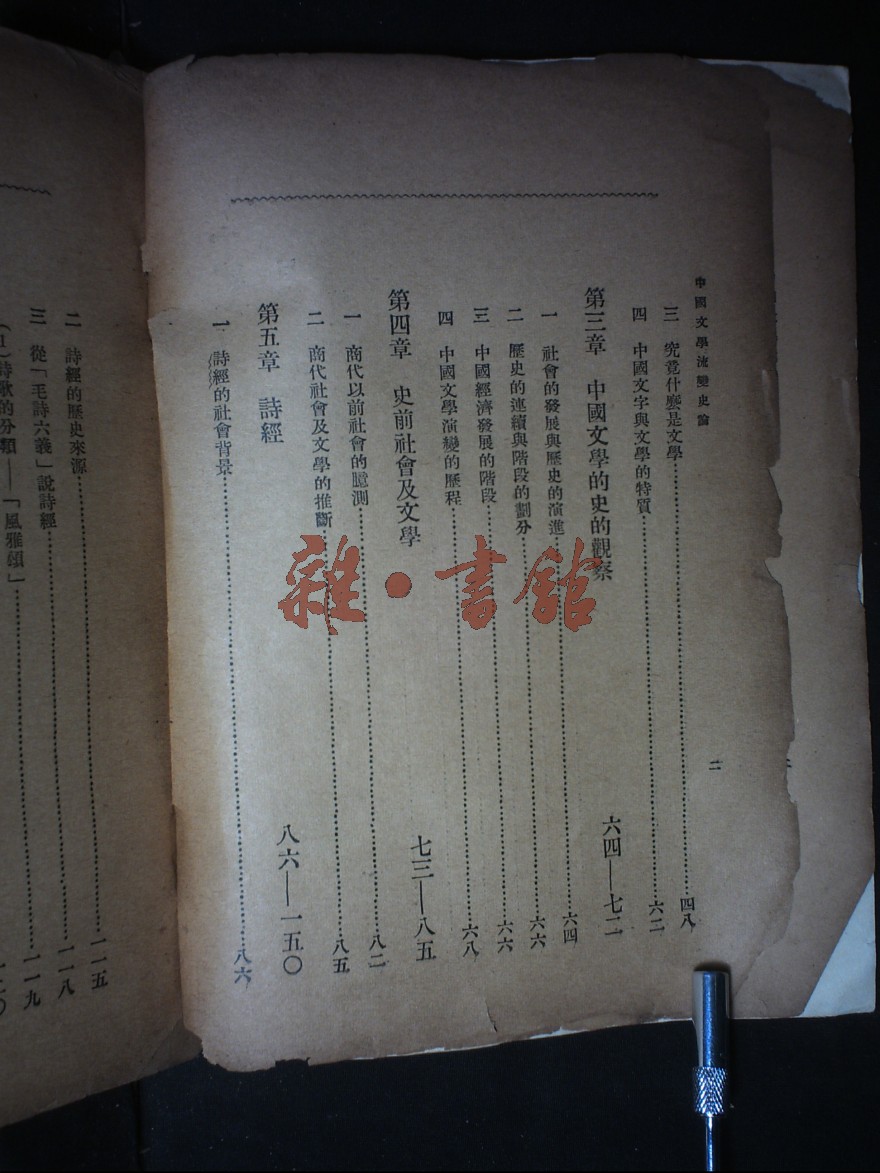 中國文學流變史論
二
三 究竟什麼是文學……四八
四 中國文字與文學的特質……六二
第三章 中國文學的史的觀察 六四—七二
一 社會的發展與歷史的演進……六四
二 歷史的連續與階段的劃分……六六
三 中國經濟發展的階段……六六
四 中國文學演變的歷程……六八
第四章 史前社會及文學 七三—八五
一 商代以前社會的臆測……八二
二 商代社會及文學的推斷……八五
第五章 詩經 八六—一五〇
一 詩經的社會背景……八六
二 詩經的歷史來源……一一五
三 從「毛詩六義」說詩經……一一八
(1)詩歌的分類——「風雅頌」……一一九
一二〇
雜·書館